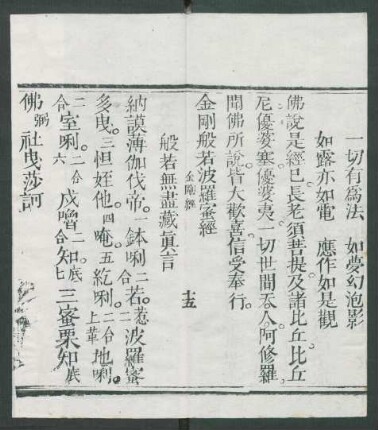 一切有爲法　如夢幻泡影
如露亦如電　應作如是觀
佛說是經已長老須菩提及諸比丘比丘
尼優婆塞優婆夷一切世間天人阿修羅
聞佛所說皆大歡喜信受奉行
金剛般若波羅蜜經
金剛經　十五
般若無盡藏眞言
納謨薄伽伐帝一鉢唎二合若惹波羅蜜
多曳三怛姪他四唵五紇唎二合上華地唎
二合室唎二合六戍嚕二合知底七三蜜栗知底
佛弼社曳莎訶